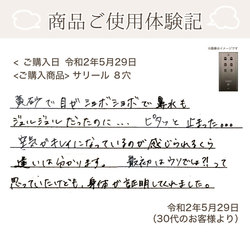 商品ご使用体験記
< ご購入日 令和2年5月29日
<ご購入商品> サリール 8穴
黄砂で目がショボショボで鼻水も
ジュルジュルだったのに… ピタッと止まった…
空気がキレイになっているのが感じられるくらい
違いは分かります。 最初はウソでは?!って
思っていたけども、身体が証明してくれました。
令和2年5月29日
(30代のお客様より)